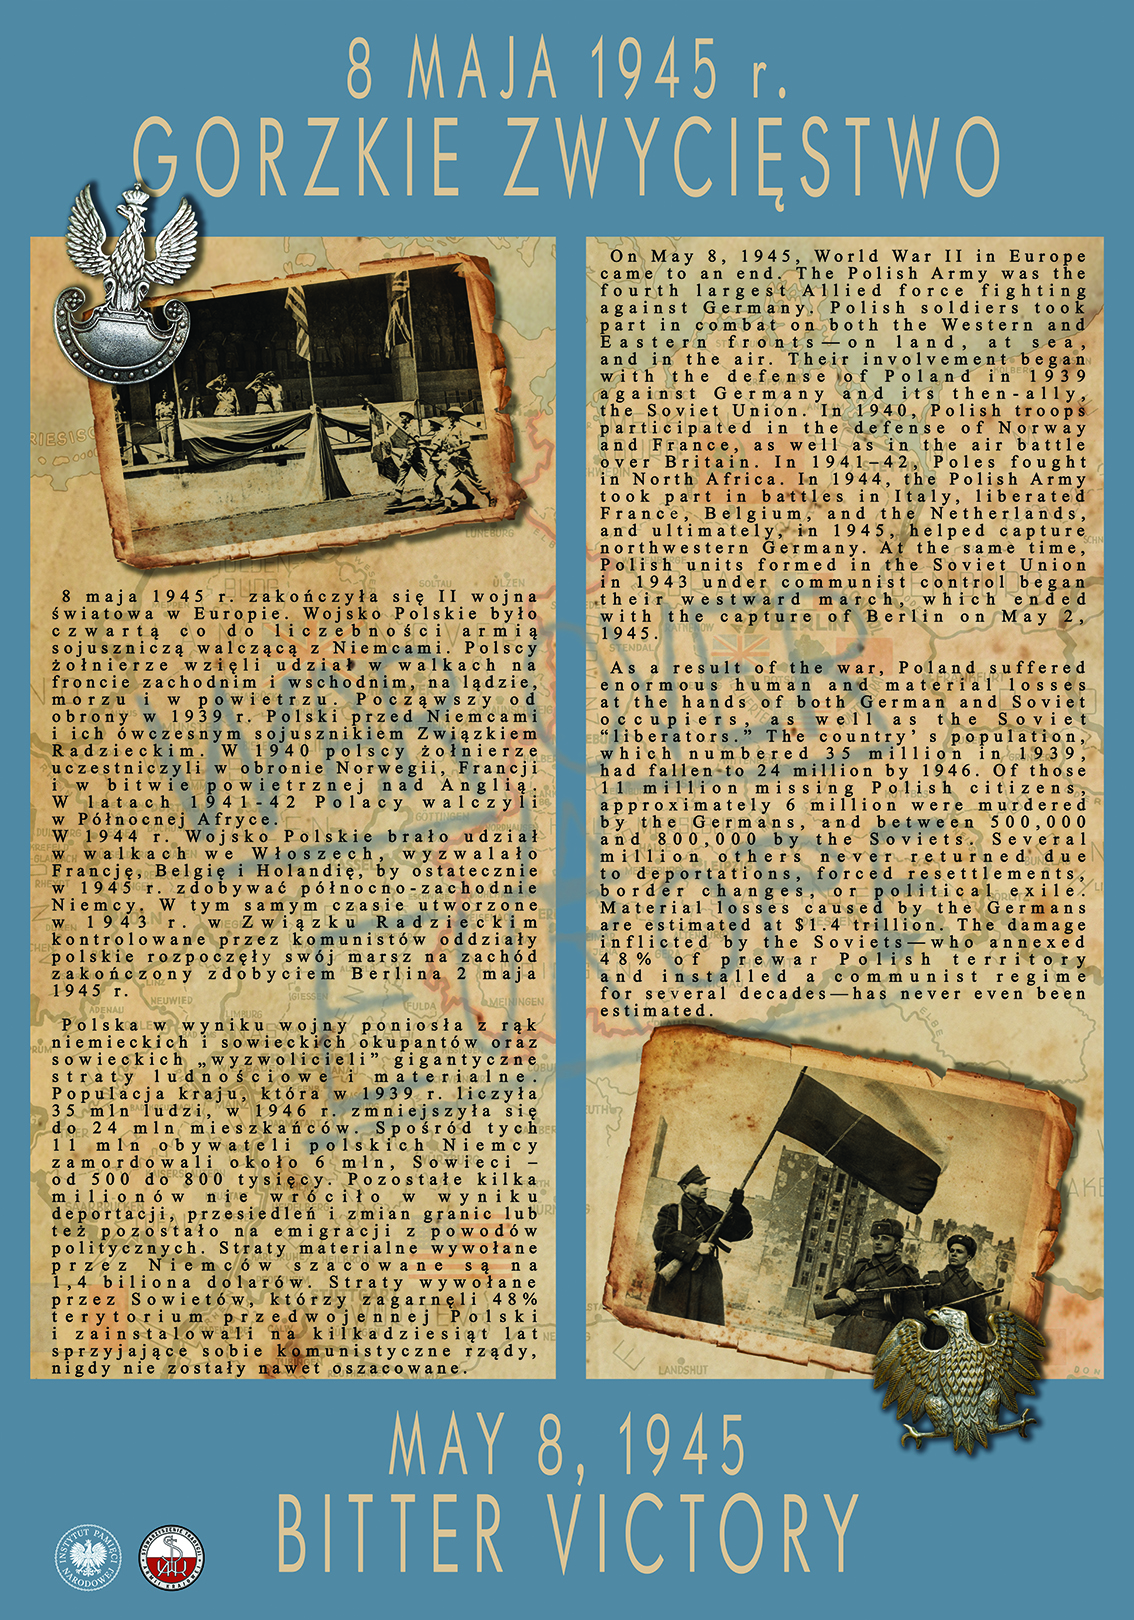 8 MAJA 1945 r.
GORZKIE ZWYCIĘSTWO
8 maja 1945 r. zakończyła się II wojna
światowa w Europie. Wojsko Polskie było
czwartą co do liczebności armią
sojuszniczą walczącą z Niemcami. Polscy
żołnierze wzięli udział w walkach na
froncie zachodnim i wschodnim, na lądzie,
morzu i w powietrzu. Począwszy od
obrony w 1939 r. Polski przed Niemcami
i ich ówczesnym sojusznikiem Związkiem
Radzieckim. W 1940 polscy żołnierze
uczestniczyli w obronie Norwegii, Francji
i w bitwie powietrznej nad Anglią.
W latach 1941-42 Polacy walczyli
w Północnej Afryce.
W 1944 r. Wojsko Polskie brało udział
w walkach we Włoszech, wyzwalało
Francję, Belgię i Holandię, by ostatecznie
w 1945 r. zdobywać północno-zachodnie
Niemcy. W tym samym czasie utworzone
w 1943 r. w Związku Radzieckim
kontrolowane przez komunistów oddziały
polskie rozpoczęły swój marsz na zachód
zakończony zdobyciem Berlina 2 maja
1945 r.
Polska w wyniku wojny poniosła z rąk
niemieckich i sowieckich okupantów oraz
sowieckich „wyzwolicieli” gigantyczne
straty ludnościowe i materialne.
Populacja kraju, która w 1939 r. liczyła
35 mln ludzi, w 1946 r. zmniejszyła się
do 24 mln mieszkańców. Spośród tych
11 mln obywateli polskich Niemcy
zamordowali około 6 mln, Sowieci –
od 500 do 800 tysięcy. Pozostałe kilka
milionów nie wróciło w wyniku
deportacji, przesiedleń i zmian granic lub
też pozostało na emigracji z powodów
politycznych. Straty materialne wywołane
przez Niemców szacowane są na
1,4 biliona dolarów. Straty wywołane
przez Sowietów, którzy zagarnęli 48%
terytorium przedwojennej Polski
i zainstalowali na kilkadziesiąt lat
sprzyjające sobie komunistyczne rządy,
nigdy nie zostały nawet oszacowane.
On May 8, 1945, World War II in Europe
came to an end. The Polish Army was the
fourth largest Allied force fighting
against Germany. Polish soldiers took
part in combat on both the Western and
Eastern fronts—on land, at sea,
and in the air. Their involvement began
with the defense of Poland in 1939
against Germany and its then-ally,
the Soviet Union. In 1940, Polish troops
participated in the defense of Norway
and France, as well as in the air battle
over Britain. In 1941–42, Poles fought
in North Africa. In 1944, the Polish Army
took part in battles in Italy, liberated
France, Belgium, and the Netherlands,
and ultimately, in 1945, helped capture
northwestern Germany. At the same time,
Polish units formed in the Soviet Union
in 1943 under communist control began
their westward march, which ended
with the capture of Berlin on May 2,
1945.
As a result of the war, Poland suffered
enormous human and material losses
at the hands of both German and Soviet
occupiers, as well as the Soviet
“liberators.” The country’ s population,
which numbered 35 million in 1939,
had fallen to 24 million by 1946. Of those
11 million missing Polish citizens,
approximately 6 million were murdered
by the Germans, and between 500,000
and 800,000 by the Soviets. Several
million others never returned due
to deportations, forced resettlements,
border changes, or political exile.
Material losses caused by the Germans
are estimated at $1.4 trillion. The damage
inflicted by the Soviets—who annexed
48% of prewar Polish territory
and installed a communist regime
for several decades—has never even been
estimated.
MAY 8, 1945
BITTER VICTORY
INSTYTUT PAMIĘCI NARODOWEJ